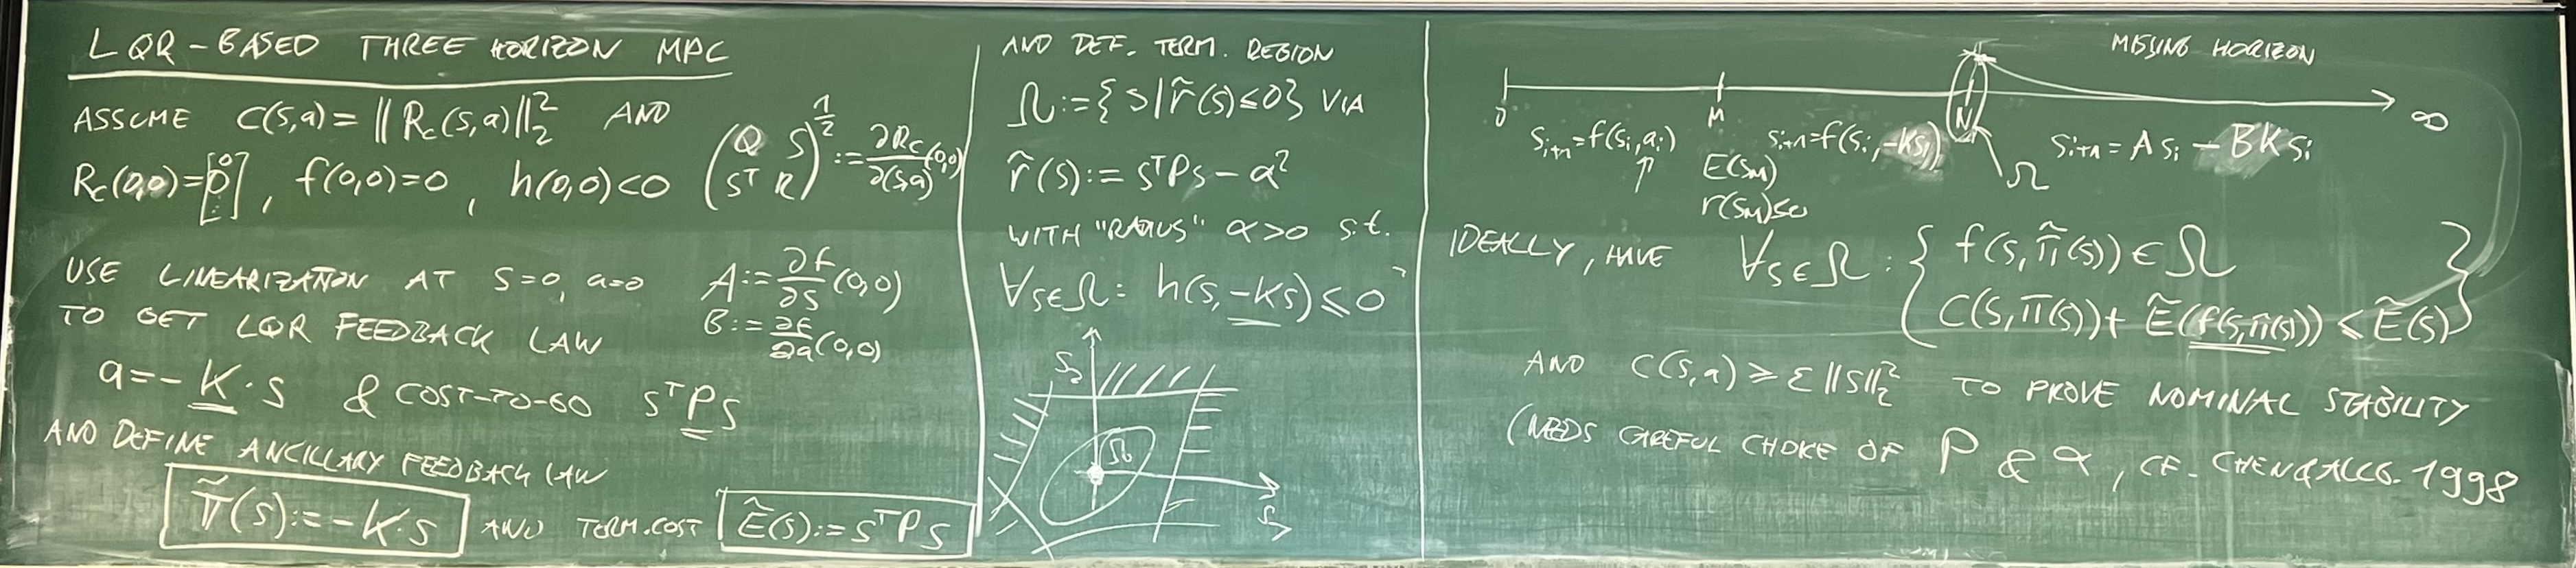 LQR-BASED THREE HORIZON MPC
ASSUME C(s,a) = ‖R_c(s,a)‖₂² AND
R_c(0,0)=[0 0 ⋮], f(0,0)=0, h(0,0)<0
(Q S; Sᵀ R)^{1/2} := ∂R_c/∂(s,a) (0,0)
USE LINEARIZATION AT S=0, a=0
TO GET LQR FEEDBACK LAW
A := ∂f/∂s (0,0)
B := ∂f/∂a (0,0)
a = -K·s & COST-TO-GO sᵀPs
AND DEFINE ANCILLARY FEEDBACK LAW
π̃(s) := -K·s AND TERM. COST Ẽ(s) := sᵀPs
AND DEF. TERM. REGION
Ω := {s | r̃(s) ≤ 0} VIA
r̃(s) := sᵀPs - α²
WITH "RADIUS" α>0 s.t.
∀s∈Ω: h(s, -Ks) ≤ 0
S₂
Ω
S₁
MISSING HORIZON
0 M N ∞
s_{i+1} = f(s_i, a_i)
s_{i+1} = f(s_i, -Ks_i)
s_{i+1} = A s_i - BK s_i
Ω
E(s_M)
r(s_M) ≤ 0
IDEALLY, HAVE ∀s∈Ω: { f(s, π̃(s)) ∈ Ω
C(s, π̃(s)) + Ẽ(f(s, π̃(s))) ≤ Ẽ(s) }
AND C(s,a) ≥ ε‖s‖₂² TO PROVE NOMINAL STABILITY
(NEEDS CAREFUL CHOICE OF P & α, CF. CHEN & ALLG. 1998